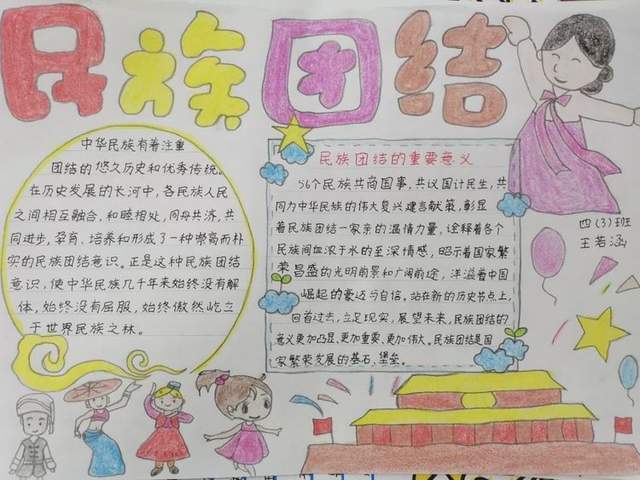 民族团结
中华民族有着注重
团结的悠久历史和优秀传统。
在历史发展的长河中,各民族人民
之间相互融合、和睦相处,同舟共济,共
同进步,孕育、培养和形成了一种崇高而朴
实的民族团结意识。正是这种民族团结
意识,使中华民族几十年来始终没有解
体,始终没有屈服,始终傲然屹立
于世界民族之林。
民族团结的重要意义
56个民族共商国事,共议国计民生,共
同为中华民族的伟大复兴建言献策,彰显
着民族团结一家亲的温情力量,诠释着各个
民族间血浓于水的至深情感,昭示着国家繁
荣昌盛的光明前景和广阔前途,洋溢着中国
崛起的豪迈与自信。站在新的历史节点上,
回首过去,立足现实,展望未来,民族团结的
意义更加凸显、更加重要、更加伟大。民族团结是国
家繁荣发展的基石,堡垒。
四(3)班
王若涵